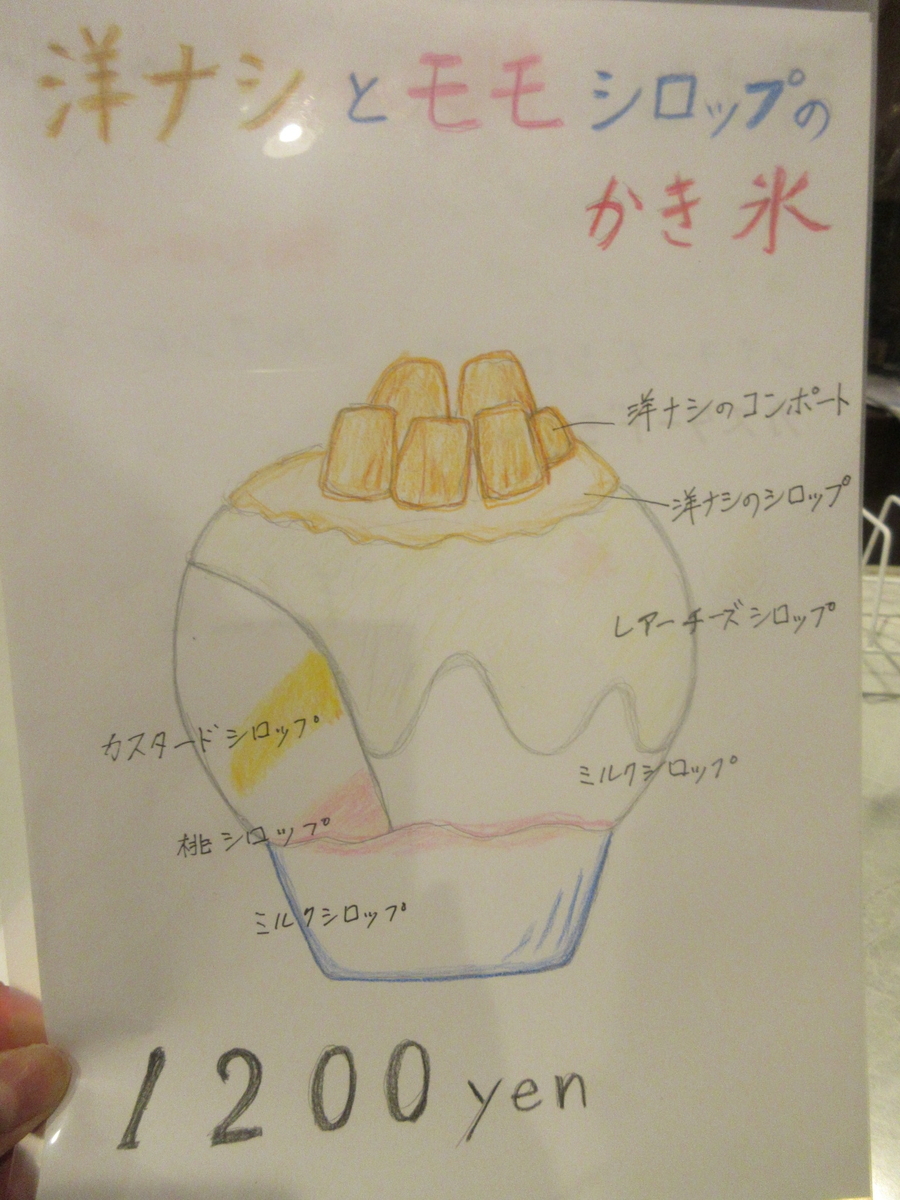 洋ナシとモモシロップの
かき氷
洋ナシのコンポート
洋ナシのシロップ
レアーチーズシロップ
カスタードシロップ
ミルクシロップ
桃シロップ
ミルクシロップ
1200 yen